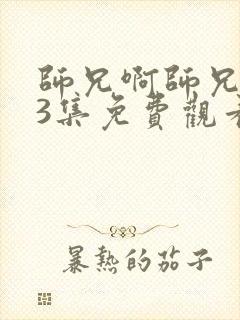 師兄啊師兄
3集免費觀看
暴熱的茄子